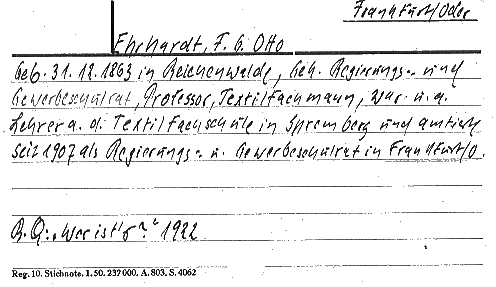 Frankfurt/Oder
Ehrhardt, F. G. Otto
Geb. 31.12.1863 in Reichenwalde, Geh. Regierungs- und
Gewerbeschulrat, Professor, Textilfachmann, war u.a.
Lehrer a. d. Textilfachschule in Spremberg und amtiert
seit 1907 als Regierungs- u. Gewerbeschulrat in Frankfurt/O.
B. Q: „Wer ist's?" 1922
Reg. 10. Stichnote. I. 50. 237000. A. 803. S. 4062